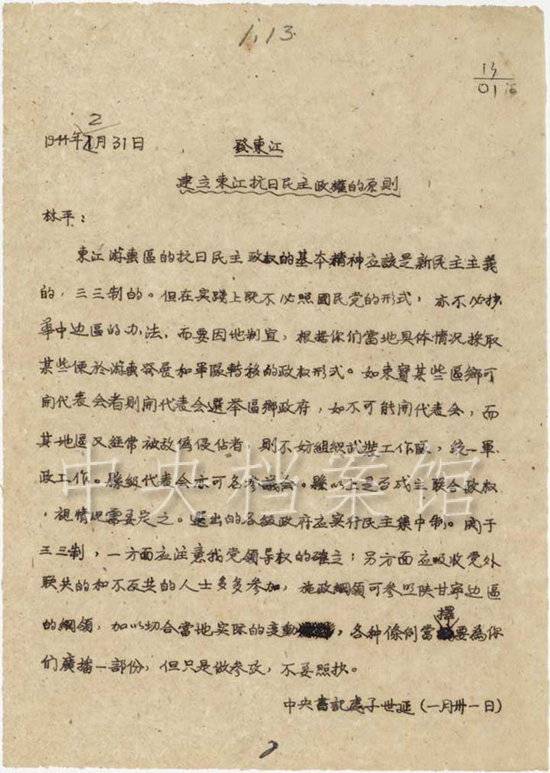 1.13
13
01
2
1944年1月31日
發東江
建立東江抗日民主政權的原則
林平：
東江游击區的抗日民主政权的基本精神应該是新民主主義
的，三三制的。但在实踐上既不必照國民党的形式，亦不必抄
華中边區的办法，而要因地制宜，根据你们當地具体情况採取
某些便於游击發展和軍隊轉移的政权形式。如東寶某些區鄉可
開代表会者則開代表会選举區鄉政府，如不可能開代表会，而
其地區又經常被敌偽侵佔者，則不妨組織武裝工作隊，統一軍
政工作。縣級代表会亦可名参議会。縣以上是否成立联合政权
，視情况需要定之。選出的各級政府应实行民主集中制。関于
三三制，一方面应注意我党领导权的確立；另方面应吸收党外
联共的和不反共的人士多多参加，施政綱領可参照陕甘寧边區
的綱領，加以切合當地实际的变動，各种條例當擇要為你
们廣播一部份，但只是做参攷，不要照抄。
中央書記處子世延（一月卅一日）
中央档案馆